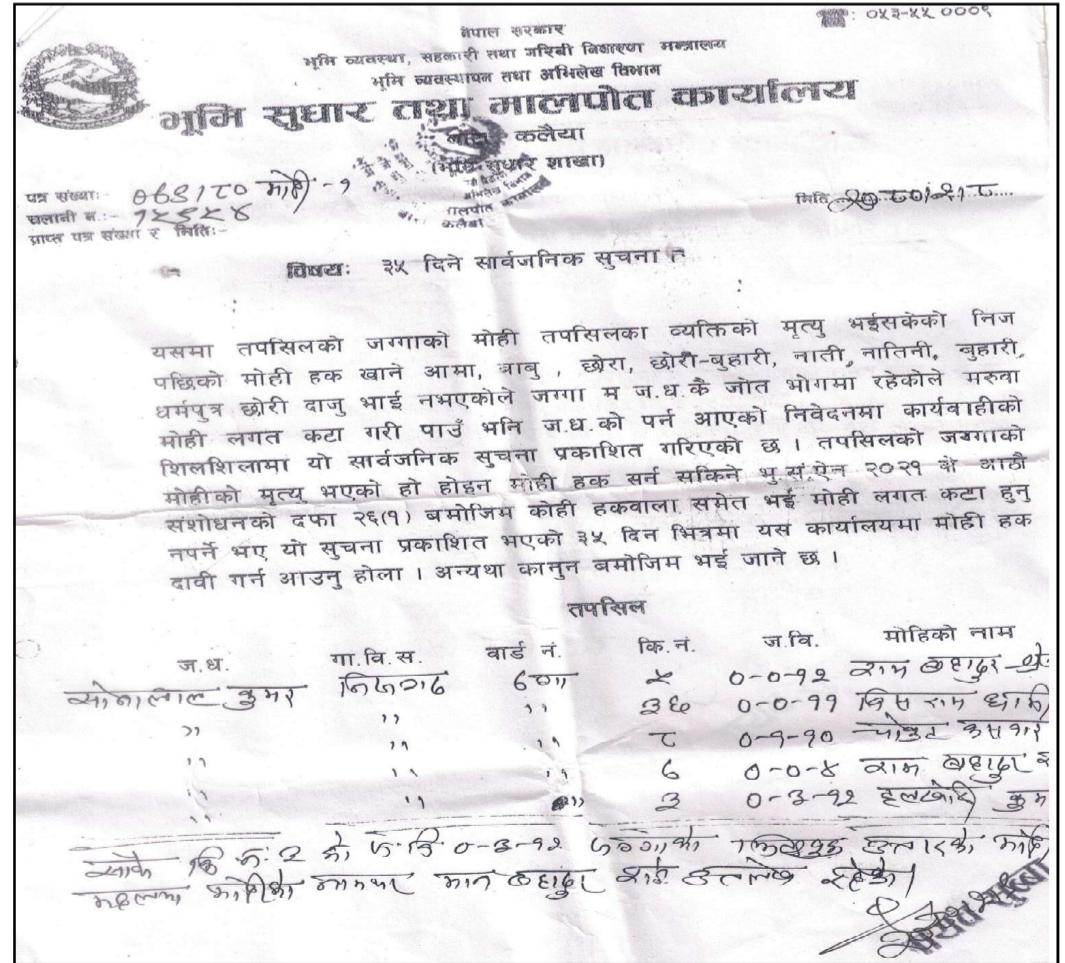 ☎: ०५३-५५ ०००९
नेपाल सरकार
भूमि व्यवस्था, सहकारी तथा गरिबी निवारण मन्त्रालय
भूमि व्यवस्थापन तथा अभिलेख विभाग
भूमि सुधार तथा मालपोत कार्यालय
कलैया
(भूमि सुधार शाखा)
पत्र संख्याः- ०७९।८० मोही -१
चलानी नं.:- १२९२४
मिति
प्राप्त पत्र संख्या र मितिः-
विषयः ३५ दिने सार्वजनिक सुचना
यसमा तपसिलको जग्गाको मोही तपसिलका व्यक्तिको मृत्यु भईसकेको निज
पछिको मोही हक खाने आमा, बाबु , छोरा, छोरी-बुहारी, नाती, नातिनी, बुहारी,
धर्मपुत्र छोरी दाजु भाई नभएकोले जग्गा म ज.ध.कै जोत भोगमा रहेकोले मरुवा
मोही लगत कटा गरी पाउँ भनि ज.ध.को पर्न आएको निवेदनमा कार्यवाहीको
शिलशिलामा यो सार्वजनिक सुचना प्रकाशित गरिएको छ । तपसिलको जग्गाको
मोहीको मृत्यू भएको हो होइन मोही हक सर्न सकिने भु.सं.ऐन २०२१ को आठौ
संशोधनको दफा २६(१) बमोजिम कोही हकवाला समेत भई मोही लगत कटा हुनु
नपर्ने भए यो सुचना प्रकाशित भएको ३५ दिन भित्रमा यस कार्यालयमा मोही हक
दावी गर्न आउनु होला । अन्यथा कानुन बमोजिम भई जाने छ ।
तपसिल
ज.ध. गा.वि.स. वार्ड नं. कि.नं. ज.वि. मोहिको नाम
सोनालाल कुमर निजगढ ५ ०-०-१२ राम बहादुर
,, ,, ,, ३६ ०-०-११ राम
,, ,, ,, ८ ०-१-१०
,, ,, ,, ६ ०-०-४ राम बहादुर
,, ,, ,, ३ ०-३-१२
कि.नं. २ को ज.वि. ०-३-१२ जग्गाको
मोहीको मान बहादुर उल्लेख रहेको।